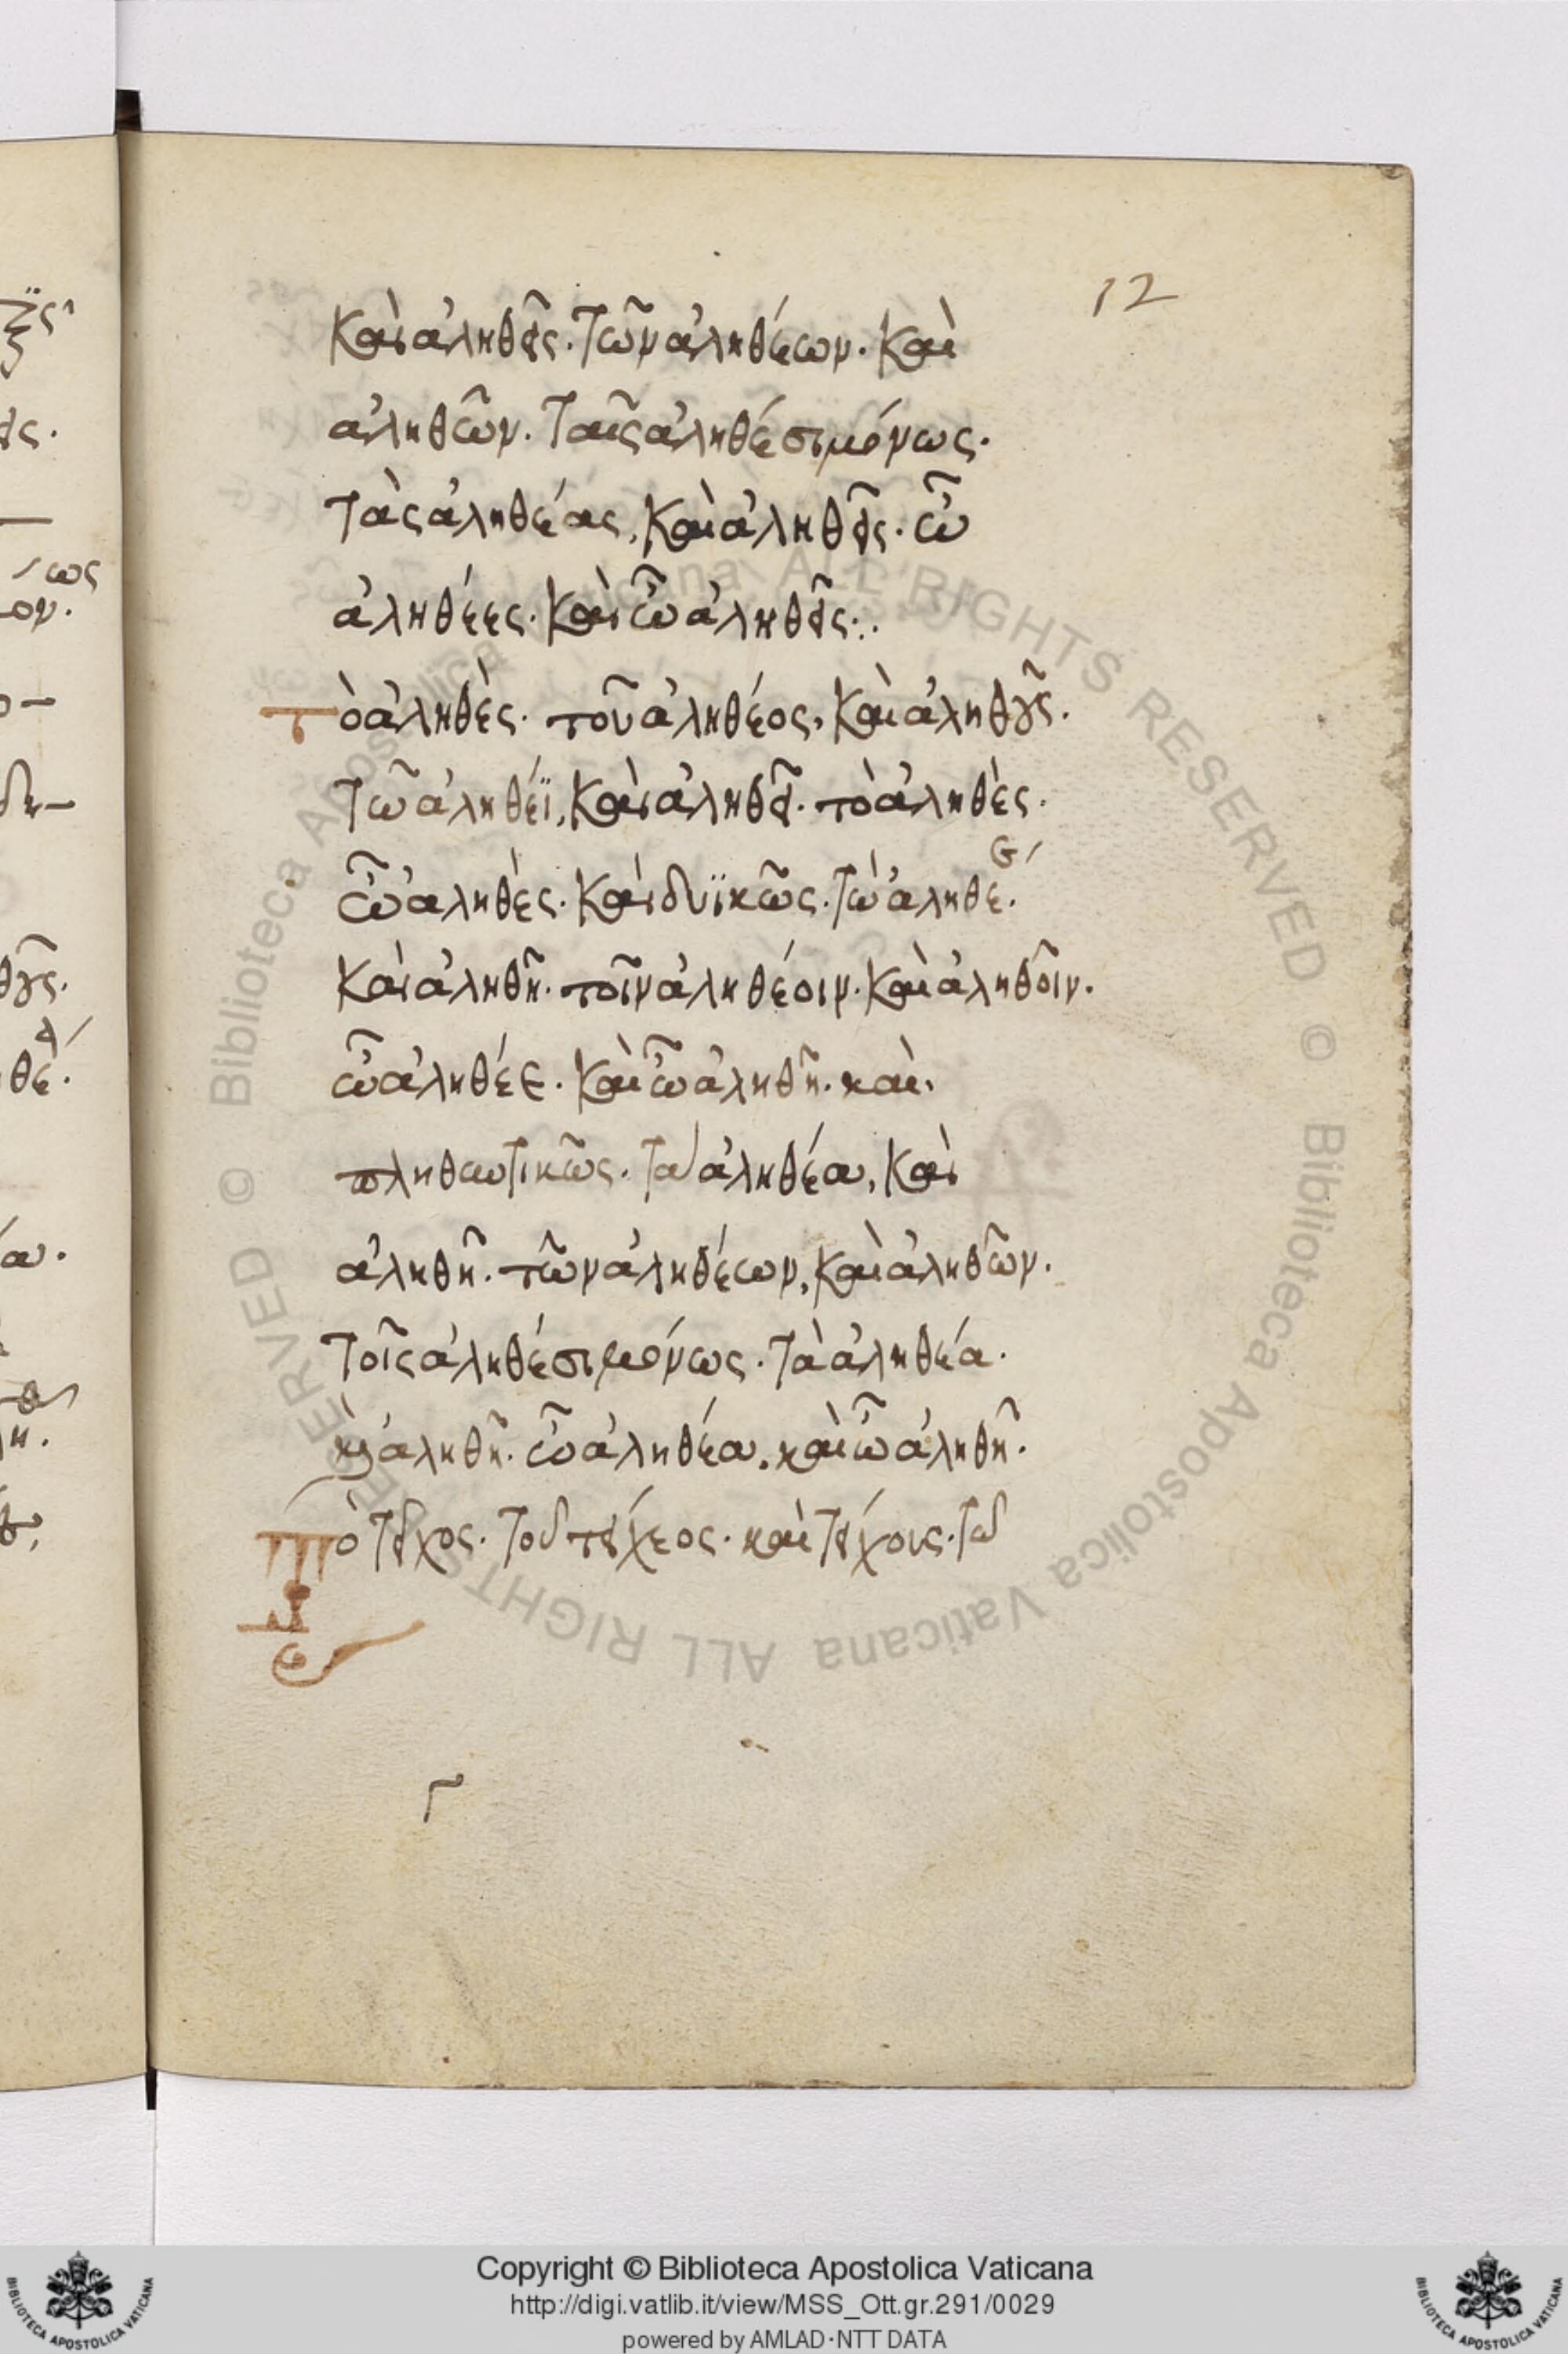 12
Καὶ ἀληθεῖς. Τῶν ἀληθέων. Καὶ
ἀληθῶν. Ταῖς ἀληθέσι μόνως.
Τὰς ἀληθέας, Καὶ ἀληθεῖς. ὦ
ἀληθέες. Καὶ ὦ ἀληθεῖς:.
Τὸ ἀληθὲς. τοῦ ἀληθέος, Καὶ ἀληθοῦς.
Τῶ ἀληθέϊ, Καὶ ἀληθεῖ. τὸ ἀληθὲς.
ὦ ἀληθὲς. Καὶ δυϊκῶς. Τὼ ἀληθέε.
Καὶ ἀληθῆ. τοῖν ἀληθέοιν. Καὶ ἀληθοῖν.
ὦ ἀληθέε. Καὶ ὦ ἀληθῆ. καὶ
πληθυντικῶς. Τὰ ἀληθέα, Καὶ
ἀληθῆ. τῶν ἀληθέων, Καὶ ἀληθῶν.
Τοῖς ἀληθέσι μόνως. Τὰ ἀληθέα.
κỳ ἀληθῆ. ὦ ἀληθέα. καὶ ὦ ἀληθῆ.
Τὸ Τεῖχος. Τοῦ τείχεος. καὶ Τείχους. Τῶ
BIBLIOTECA APOSTOLICA VATICANA
Copyright © Biblioteca Apostolica Vaticana
http://digi.vatlib.it/view/MSS_Ott.gr.291/0029
powered by AMLAD·NTT DATA
BIBLIOTECA APOSTOLICA VATICANA
© Biblioteca Apostolica Vaticana ALL RIGHTS RESERVED
© Biblioteca Apostolica Vaticana ALL RIGHTS RESERVED